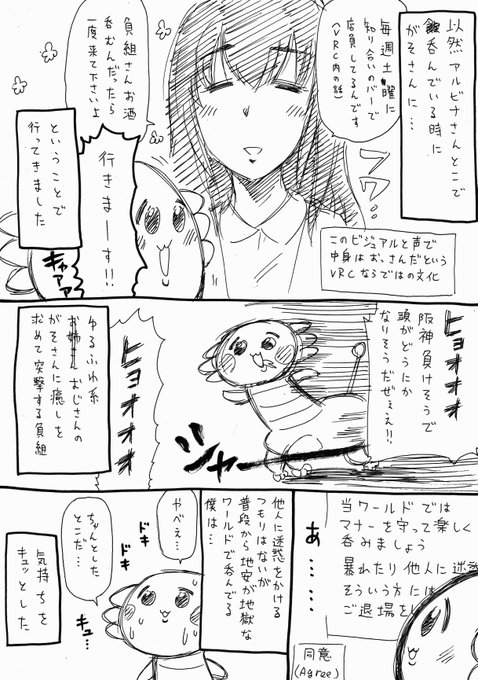 以然アルビナさんとこで
呑んでいる時に
がそさんに…
毎週土曜に
知り合いのバーで
店員してるんです
(VRC内の話)
フワ…
負組さんお酒
呑むんだったら
一度来て下さいよ
行きまーす!!
ということで
行ってきました
キャアァァ
このビジュアルと声で
中身はおっさんだという
VRCならではの文化
ヒョオオオオ
阪神負けそうで
頭がどうにか
なりそうだぜぇぇ!!
ジャ
ヒョオオオオ
ゆるふわ系
お姉さんおじさんの
がそさんに癒しを
求めて突撃する負組
当ワールドでは
マナーを守って楽しく
呑みましょう
暴れたり他人に迷
そういう方には
ご退場を
あ……
同意
(Agree)
他人に迷惑をかける
つもりはないが
普段から地安が地獄な
ワールドで呑んでる
僕は…
やべえ…
ドキ
ドキ
ちゃんとした
とこだ…
キュ…
気持ちを
キュッとした